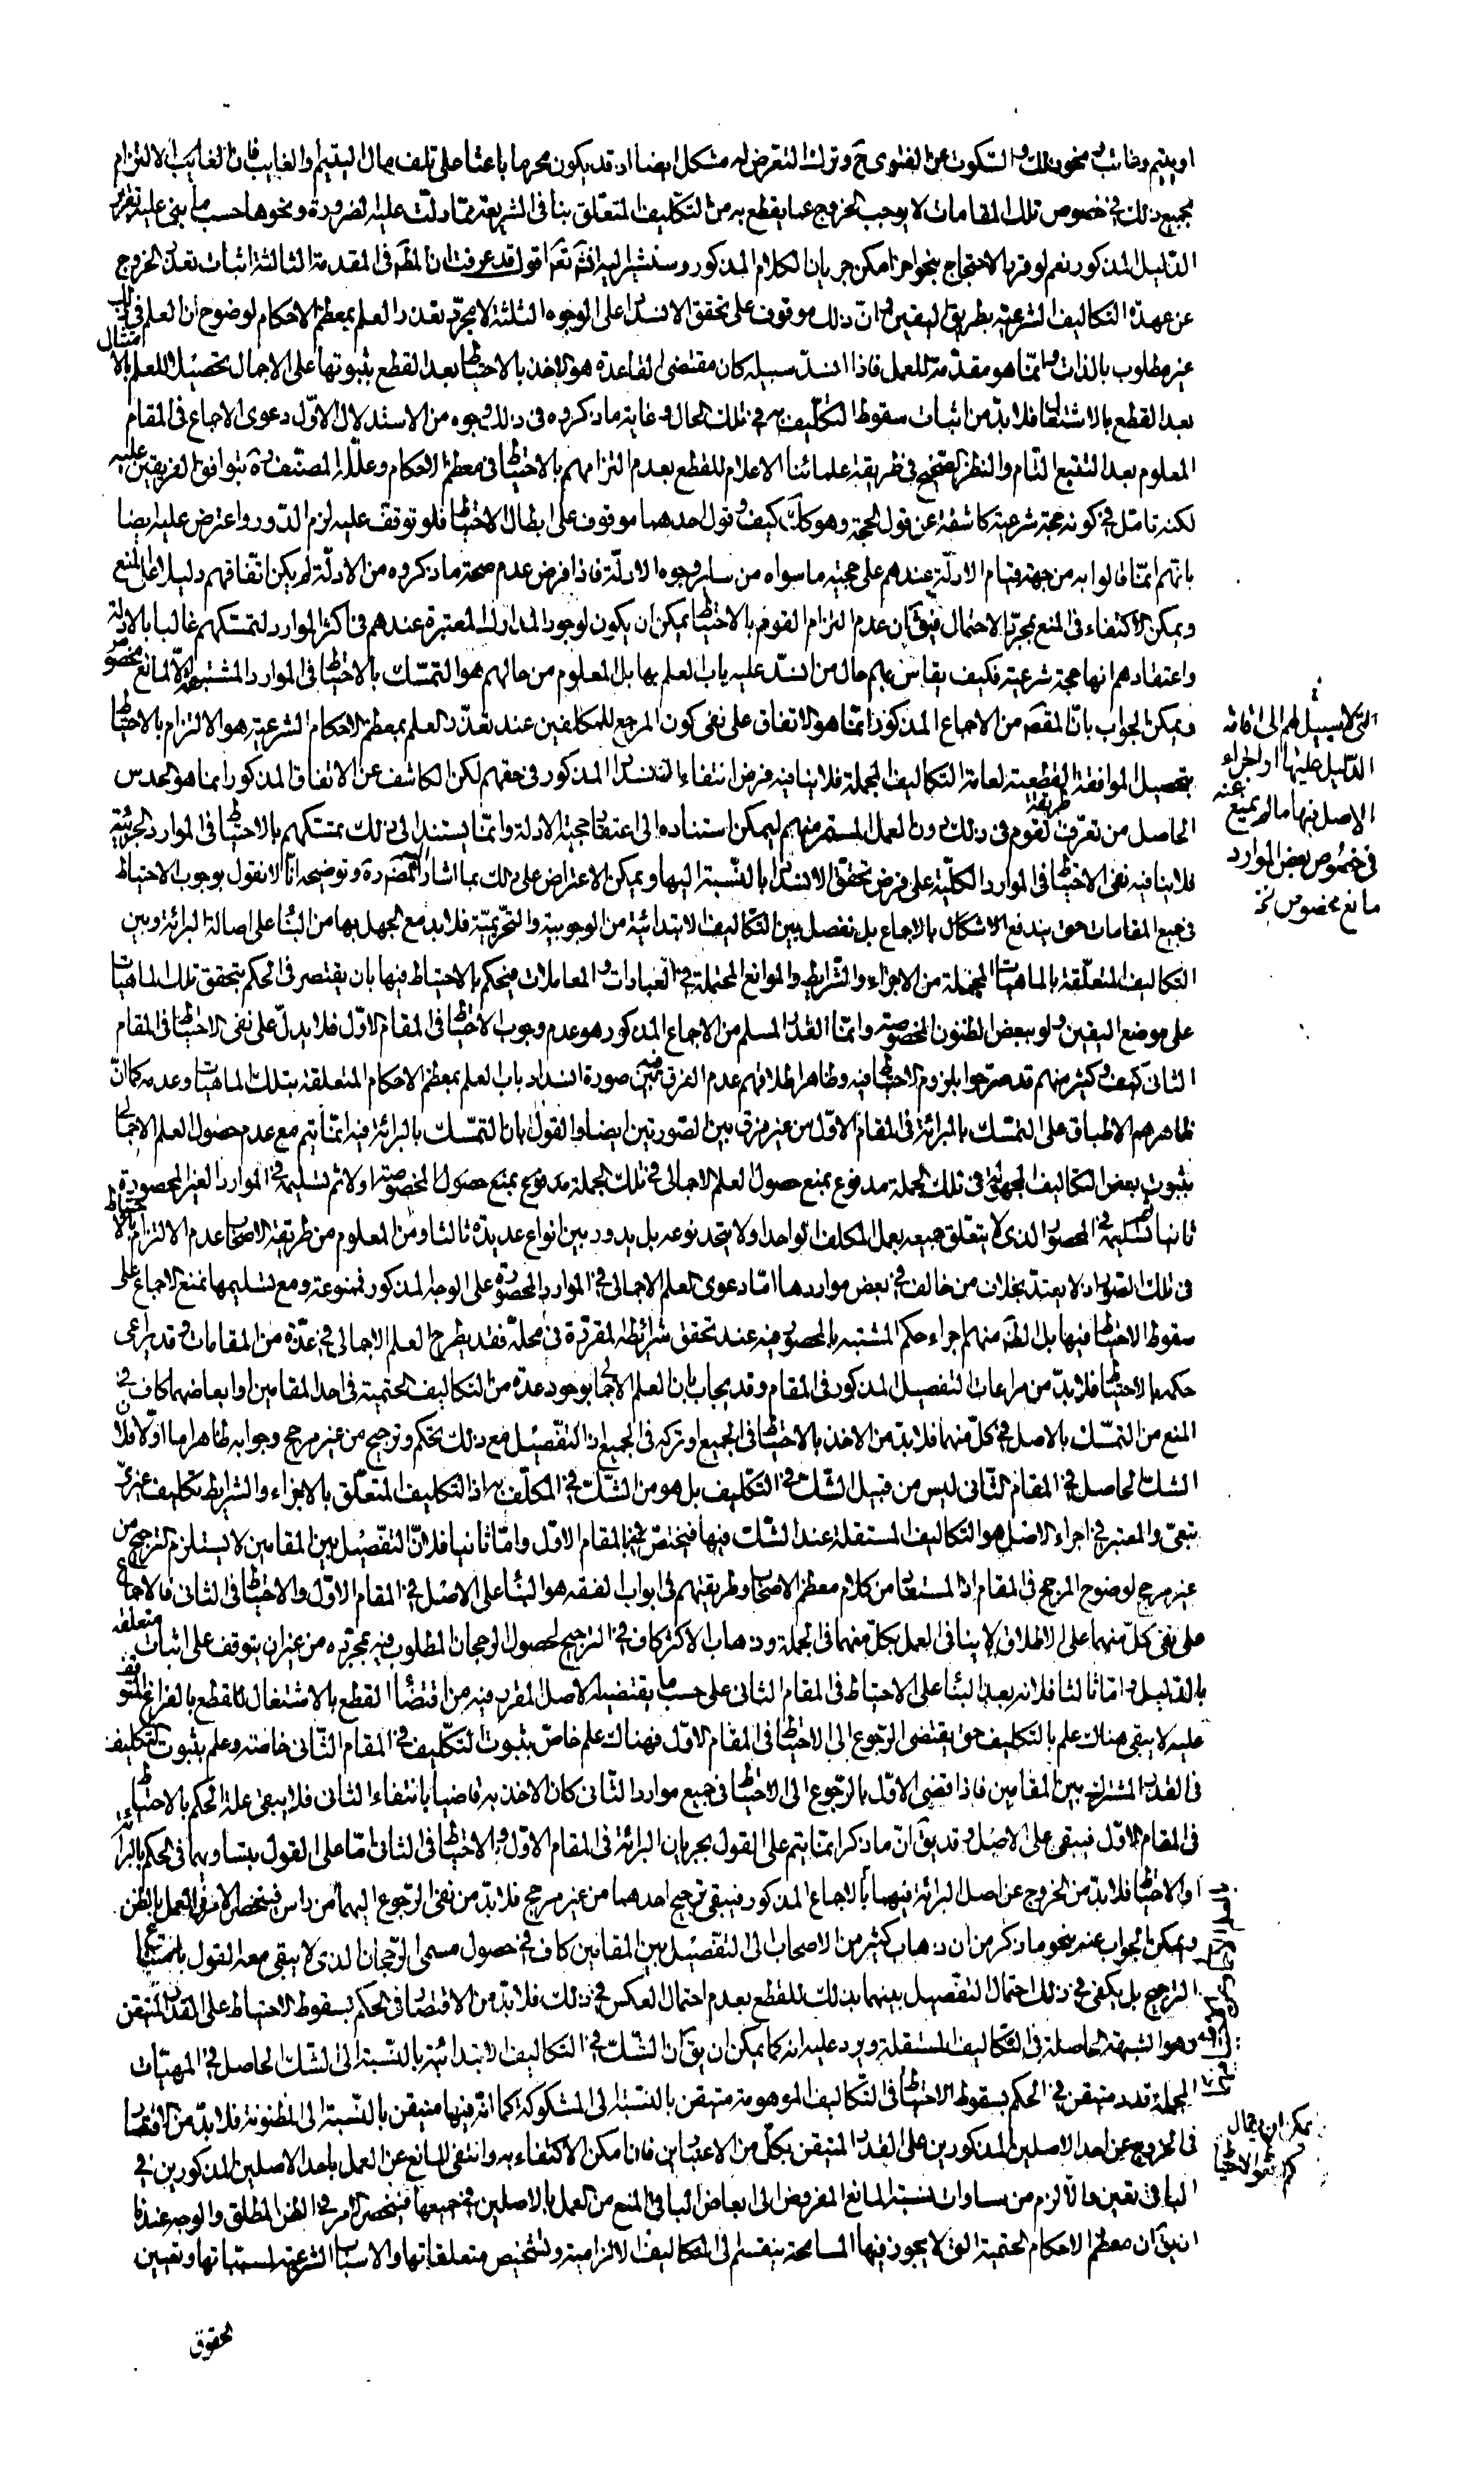 او يتيم وغائب ونحو ذلك والسكوت عن الفتوى ح وترك التعرض له مشكل ايضا اذ قد يكون محرما باعثا على تلف مال اليتيم والغايب فان الغايب الالتزام
بجميع ذلك في خصوص تلك المقامات لا يوجب الخروج عما يقطع به من التكليف المتعلق بنا في الشريعة مما دلت عليه الضرورة ونحوها حسب ما بنى عليه تقرير
الدليل المذكور نعم لو قرر الاحتجاج بنحو اخر امكن جريان الكلام المذكور وسنشير اليه انش تعم اقول قد عرفت ان المقم في المقدمة الثالثة اثبات تعذر الخروج
عن عهدة التكاليف الشرعية بطريق اليقين وان ذلك موقوف على تحقق الانسداد على الوجوه الثلثة لا مجرد تعذر العلم بمعظم الاحكام لوضوح ان العلم في
غير مطلوب بالذات وانما هو مقدمة للعمل فاذا انسد سبيله كان مقتضى القاعدة هو الاخذ بالاحتياط بعد القطع بثبوتها على الاجمال تحصيلا للعلم بالامتثال
بعد القطع بالاشتغال فلا بد من اثبات سقوط التكليف به في تلك الحال وغاية ما ذكروه في ذلك وجوه من الاستدلال الاول دعوى الاجماع في المقام
المعلوم بعد التتبع التام والنظر الصحيح في طريقة علمائنا الاعلام للقطع بعدم التزامهم بالاحتياط في معظم الاحكام وعلله المصنف ره بتوافق الفريقين عليه
لكنه تامل في كونه حجة شرعية كاشفة عن قول الحجة وهو كك كيف وقول احدهما موقوف على ابطال الاحتياط فلو توقف عليه لزم الدور واعترض عليه ايضا
بانهم انما قالوا به من جهة قيام الادلة عندهم على حجية ما سواه من ساير وجوه الادلة فاذا فرض عدم صحة ما ذكروه من الادلة لم يكن اتفاقهم دليلا على المنع
ويمكن الاكتفاء في المنع بمجرد الاحتمال فيق ان عدم التزام القوم بالاحتياط يمكن ان يكون لوجود المدارك المعتبرة عندهم في اكثر الموارد لتمسكهم غالبا بالادلة
واعتقادهم انها حجة شرعية فكيف يقاس بهم حال من انسد عليه باب العلم بها بل المعلوم من حالهم هو التمسك بالاحتياط في الموارد المشتبهة الا لمانع مخصوص
ويمكن الجواب بان المقصم من الاجماع المذكور انما هو الاتفاق على نفى كون المرجع للمكلفين عند تعذر العلم بمعظم الاحكام الشرعية هو الالتزام بالاحتياط
بتحصيل الموافقة القطعية لعامة التكاليف المجملة فلا ينافيه فرض انتفاء الانسداد المذكور في حقهم لكن الكاشف عن الاتفاق المذكور انما هو الحدس
الحاصل من تعرف طريقة القوم في ذلك دون العمل المستمر منهم ليمكن استناده الى اعتقاد حجية الادلة وانما يستند الى ذلك تمسكهم بالاحتياط في الموارد الجزئية
فلا ينافيه نفى الاحتياط في الموارد الكلية على فرض تحقق الانسداد بالنسبة اليها ويمكن الاعتراض على ذلك بما اشار المص ره وتوضيحه انا لا نقول بوجوب الاحتياط
في جميع المقامات حتى يندفع الاشكال بالاجماع بل نفصل بين التكاليف الابتدائية من الوجوبية والتحريمية فلا بد مع الجهل بها من البناء على اصالة البرائة وبين
التكاليف المتعلقة بالماهيات المجملة من الاجزاء والشرايط والموانع المحتملة في العبادات والمعاملات فيحكم بالاحتياط فيها بان يقتصر في الحكم بتحقق تلك الماهيات
على موضع اليقين ولو ببعض الظنون المخصوصة وانما القدر المسلم من الاجماع المذكور هو عدم وجوب الاحتياط في المقام الاول فلا يدل على نفى الاحتياط في المقام
الثاني كيف وكثير منهم قد صرحوا بلزوم الاحتياط فيه وظاهر اطلاقهم عدم الفرق فيه بين صورة انسداد باب العلم بمعظم الاحكام المتعلقة بتلك الماهيات وعدمه كما ان
ظاهرهم الاطباق على التمسك بالبرائة في المقام الاول من غير فرق بين الصورتين ايضا والقول بان التمسك بالبرائة فيه انما يتم مع عدم حصول العلم الاجمالي
بثبوت بعض التكاليف المجهولة في تلك الجملة مدفوع بمنع حصول العلم الاجمالي في تلك الجملة مدفوع بمنع حصول المخصوصة اولا ثم تسليمه في الموارد الغير المحصورة
ثانيا ثم تسليمه في المحصور الذي لا يتعلق جميعه بعمل المكلف الواحد ولا يتحد نوعه بل يدور بين انواع عديدة ثالثا ومن المعلوم من طريقة الاصحاب عدم الالتزام بالاحتياط
في تلك الصور اذ لا يعتد بخلاف من خالف في بعض مواردها اما دعوى العلم الاجمالي في الموارد المحصورة على الوجه المذكور فممنوعة ومع تسليمها نمنع الاجماع على
سقوط الاحتياط فيها بل الظم منهم اجراء حكم المشتبه بالمحصور فيه عند تحقق شرائطه المقررة في محله فقد يطرح العلم الاجمالي في عدة من المقامات وقد يراعى
حكمه بالاحتياط فلا بد من مراعات التفصيل المذكور في المقام وقد يجاب بان العلم الاجمالي بوجود عدة من التكاليف الحتمية في احد المقامين او ابعاضهما كاف في
المنع من التمسك بالاصل في كل منهما فلا بد من الاخذ بالاحتياط في الجميع او تركه في الجميع اذ التفصيل مع ذلك تحكم وترجيح من غير مرجح وجوابه ظاهر اما اولا فلان
الشك الحاصل في المقام الثاني ليس من قبيل الشك في التكليف بل هو من الشك في المكلف به اذ التكليف المتعلق بالاجزاء والشرايط تكليف غيري
تبعي والمعتبر في اجراء الاصل هو التكاليف المستقلة عند الشك فيها فيختص بالمقام الاول واما ثانيا فلان التفصيل بين المقامين لا يستلزم الترجيح من
غير مرجح لوضوح المرجح في المقام اذ المستفاد من كلام معظم الاصحاب وطريقتهم في ابواب الفقه هو البناء على الاصل في المقام الاول والاحتياط في الثاني فالاجماع
على نفى كل منهما على الاطلاق لا ينافي العمل بكل منهما في الجملة وذهاب الاكثر كاف في الترجيح لحصول الرجحان المطلوب فيه بمجرده من غير ان يتوقف على اثبات متعلقه
بالدليل واما ثالثا فلانه بعد البناء على الاحتياط في المقام الثاني على حسب ما يقتضيه الاصل المقرر فيه من اقتضاء القطع بالاشتغال للقطع بالفراغ المتوقف
عليه لا يبقى هناك علم بالتكليف حتى يقتضى الرجوع الى الاحتياط في المقام الاول فهناك علم خاص بثبوت التكليف في المقام الثاني خاصة وعلم بثبوت التكليف
في القدر المشترك بين المقامين فاذا قضى الاول بالرجوع الى الاحتياط في جميع موارد الثاني كان الاخذ به قاضيا بانتفاء الثاني فلا يبقى علة الحكم بالاحتياط
في المقام الاول فيبقى على الاصل وقد يق ان ما ذكر انما يتم على القول بجريان البرائة في المقام الاول والاحتياط في الثاني اما على القول بتساويهما في الحكم بالبرائة
او الاحتياط فلا بد من الخروج عن اصل البرائة فيهما بالاجماع المذكور فيبقى ترجيح احدهما من غير مرجح فلا بد من نفى الرجوع اليهما من راس فينحصر الامر في العمل بالظن
ويمكن الجواب عنه بنحو ما ذكر من ان ذهاب كثير من الاصحاب الى التفصيل بين المقامين كاف في حصول مسمى الرجحان الذي لا يبقى معه القول بامتناع
الترجيح بل يكفى في ذلك احتمال التفصيل بينهما بذلك للقطع بعدم احتمال العكس في ذلك فلا بد من الاقتصار في الحكم بسقوط الاحتياط على القدر المتيقن
وهو الشبهة الحاصلة في التكاليف المستقلة ويرد عليه انه كما يمكن ان يق ان الشك في التكاليف الابتدائية بالنسبة الى الشك الحاصل في المهيات
المجملة قدر متيقن في الحكم بسقوط الاحتياط في التكاليف الموهومة متيقن بالنسبة الى المشكوكة كما انه فيها متيقن بالنسبة الى المظنونة فلا بد من الاقتصار
في الخروج عن احد الاصلين المذكورين على القدر المتيقن بكل من الاعتبارين فان امكن الاكتفاء به وانتفى المانع عن العمل باحد الاصلين المذكورين في
الباقي تعين والا لزم من مساوات نسبة المانع المفروض الى ابعاض الباقي المنع من العمل بالاصلين في جميعها فينحصر الامر في الظن المطلق والوجه عندنا
ان يق ان معظم الاحكام الحتمية التي لا يجوز فيها المسامحة ينقسم الى التكاليف الالزامية وتشخيص متعلقاتها والاسباب الشرعية لمسبباتها وتعيين
الحقوق
التي لا سبيل لهم الى اقامة
الدليل عليها او اجراء
الاصل فيها ما لم يمنع عنه
في خصوص بعض الموارد
مانع مخصوص نخ
يمكن ان يقال